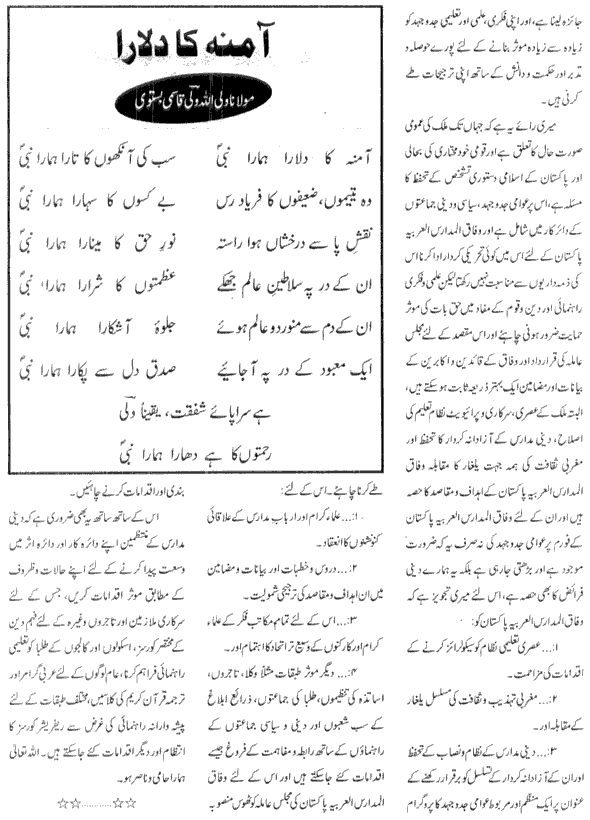 جائزہ لینا ہے، اور اپنی فکری، علمی اور تعلیمی جدوجہد کو
زیادہ سے زیادہ موثر بنانے کے لئے پورے حوصلہ و
تدبر اور حکمت و دانش کے ساتھ اپنی ترجیحات طے
کرنی ہیں۔
میری رائے یہ ہے کہ جہاں تک ملک کی عمومی
صورت حال کا تعلق ہے اور قومی خود مختاری کی بحالی
اور پاکستان کے اسلامی دستوری تشخص کے تحفظ کا
مسئلہ ہے، اس پر عوامی جدوجہد، سیاسی و دینی جماعتوں
کے دائرکار میں شامل ہے اور وفاق المدارس العربیہ
پاکستان کے لئے اس میں کوئی تحریکی کردار ادا کرنا اس
کی ذمہ داریوں سے مناسبت نہیں رکھتا لیکن علمی و فکری
راہنمائی اور دین و قوم کے مفاد میں حق بات کی موثر
حمایت ضرور ہونی چاہئے اور اس مقصد کے لئے مجلس
عاملہ کی قرارداد اور وفاق کے قائدین و اکابرین کے
بیانات اور مضامین ایک بہتر ذریعہ ثابت ہوسکتے ہیں،
البتہ ملک کے عصری، سرکاری و پرائیویٹ نظام تعلیم کی
اصلاح، دینی مدارس کے آزادانہ کردار کا تحفظ اور
مغربی ثقافت کی ہمہ جہت یلغار کا مقابلہ وفاق
المدارس العربیہ پاکستان کے اہداف و مقاصد کا حصہ
ہیں اور ان کے لئے وفاق المدارس العربیہ پاکستان
کے فورم پر عوامی جدوجہد کی نہ صرف یہ کہ ضرورت
موجود ہے اور بڑھتی جارہی ہے بلکہ یہ ہمارے دینی
فرائض کا بھی حصہ ہے، اس لئے میری تجویز ہے کہ
وفاق المدارس العربیہ پاکستان کو:
۱:... عصری تعلیمی نظام کو سیکولرائز کرنے کے
اقدامات کی مزاحمت۔
۲:... مغربی تہذیب و ثقافت کی مسلسل یلغار
کے مقابلہ اور۔
۳:... دینی مدارس کے نظام و نصاب کے تحفظ
اور ان کے آزادانہ کردار کے تسلسل کو برقرار رکھنے کے
عنوان پر ایک منظم اور مربوط عوامی جدوجہد کا پروگرام
آمنہ کا دلارا
مولانا ولی اللہ ولی قاسمی بستوی
آمنہ کا دلارا ہمارا نبیؐ سب کی آنکھوں کا تارا ہمارا نبیؐ
وہ یتیموں، ضعیفوں کا فریاد رس بے کسوں کا سہارا ہمارا نبیؐ
نقشِ پا سے درخشاں ہوا راستہ نورِ حق کا مینارا ہمارا نبیؐ
ان کے در پہ سلاطین عالم جھکے عظمتوں کا شرارا ہمارا نبیؐ
ان کے دم سے منور دو عالم ہوئے جلوۂ آشکارا ہمارا نبیؐ
ایک معبود کے در پہ آجائیے صدق دل سے پکارا ہمارا نبیؐ
ہے سراپائے شفقت، یقیناً ولی
رحمتوں کا ہے دھارا ہمارا نبیؐ
طے کرنا چاہئے۔ اس کے لئے:
۱:... علماء کرام اور ارباب مدارس کے علاقائی
کنونشنوں کا انعقاد۔
۲:... دروس و خطبات اور بیانات و مضامین
میں ان اہداف و مقاصد کی ترجیحی شمولیت۔
۳:... اس کے لئے تمام مکاتب فکر کے علماء
کرام اور کارکنوں کے وسیع تر اتحاد کا اہتمام اور۔
۴:... دیگر موثر طبقات مثلاً وکلا، تاجروں،
اساتذہ کی تنظیموں، طلبا کی جماعتوں، ذرائع ابلاغ
کے سب شعبوں اور دینی و سیاسی جماعتوں کے
راہنماؤں کے ساتھ رابطہ و مفاہمت کے فروغ جیسے
اقدامات کئے جاسکتے ہیں اور اس کے لئے وفاق
المدارس العربیہ پاکستان کی مجلس عاملہ کو ٹھوس منصوبہ
بندی اور اقدامات کرنے چاہئیں۔
اس کے ساتھ ساتھ یہ بھی ضروری ہے کہ دینی
مدارس کے منتظمین اپنے دائرہ کار اور دائرہ اثر میں
وسعت پیدا کرنے کے لئے اپنے حالات و ظروف
کے مطابق موثر اقدامات کریں، جس کے لئے
سرکاری ملازمین اور تاجروں وغیرہ کے لئے فہم دین
کے مختصر کورسز، اسکولوں اور کالجوں کے طلبا کو تعلیمی
راہنمائی فراہم کرنا، عام لوگوں کے لئے عربی گرامر اور
ترجمہ قرآن کریم کی کلاسیں، مختلف طبقات کے لئے
پیشہ وارانہ راہنمائی کی غرض سے ریفریشر کورسز کا
انتظام اور دیگر اقدامات کئے جاسکتے ہیں۔ اللہ تعالیٰ
ہمارا حامی و ناصر ہو۔
☆☆............☆☆